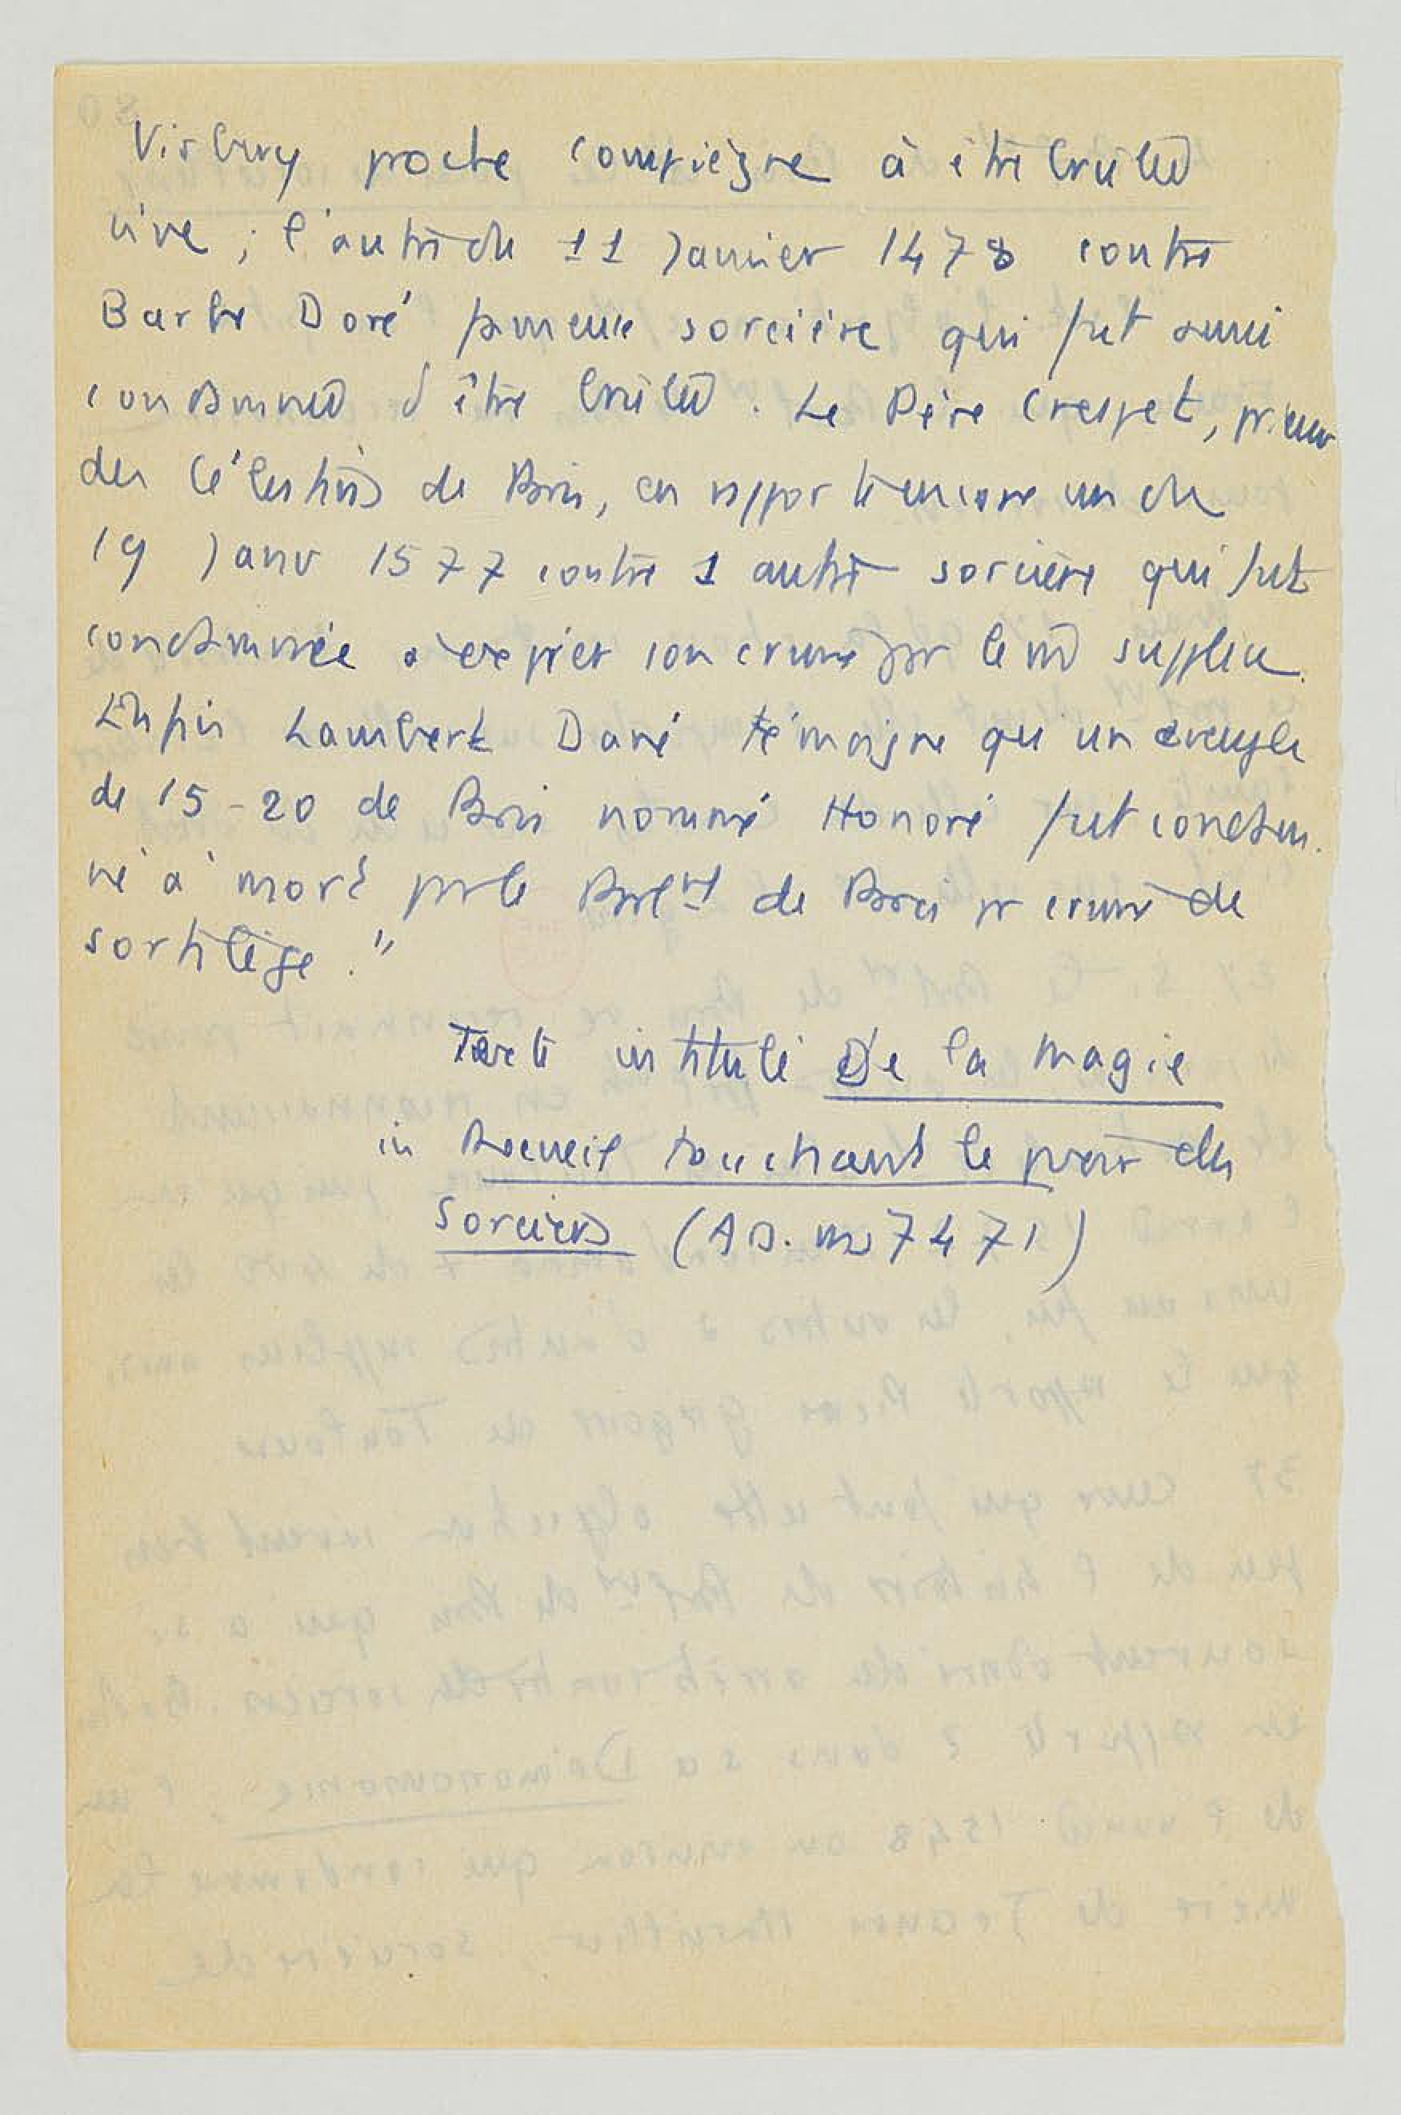 Verbery proche Compiègne à être brulée
vive ; l'autre du 11 Janvier 1478 contre
Barbe Doré fameuse sorcière qui fut aussi
condamnée d'être brûlée. Le Père Crespet, prieur
des Célestins de Paris, en rapporte encore un du
19 Janv 1577 contre 1 autre sorcière qui fut
condamnée à expier son crime par le m supplice.
Enfin Lambert Dané témoigne qu'un aveugle
de 15-20 de Paris nommé Honoré fut condam.
né à mort par le Parlmt de Paris pr crime de
sortilège."
Texte intitulé De la magie
in Recueil touchant le procès des
sorciers (Ars. ms 7471)